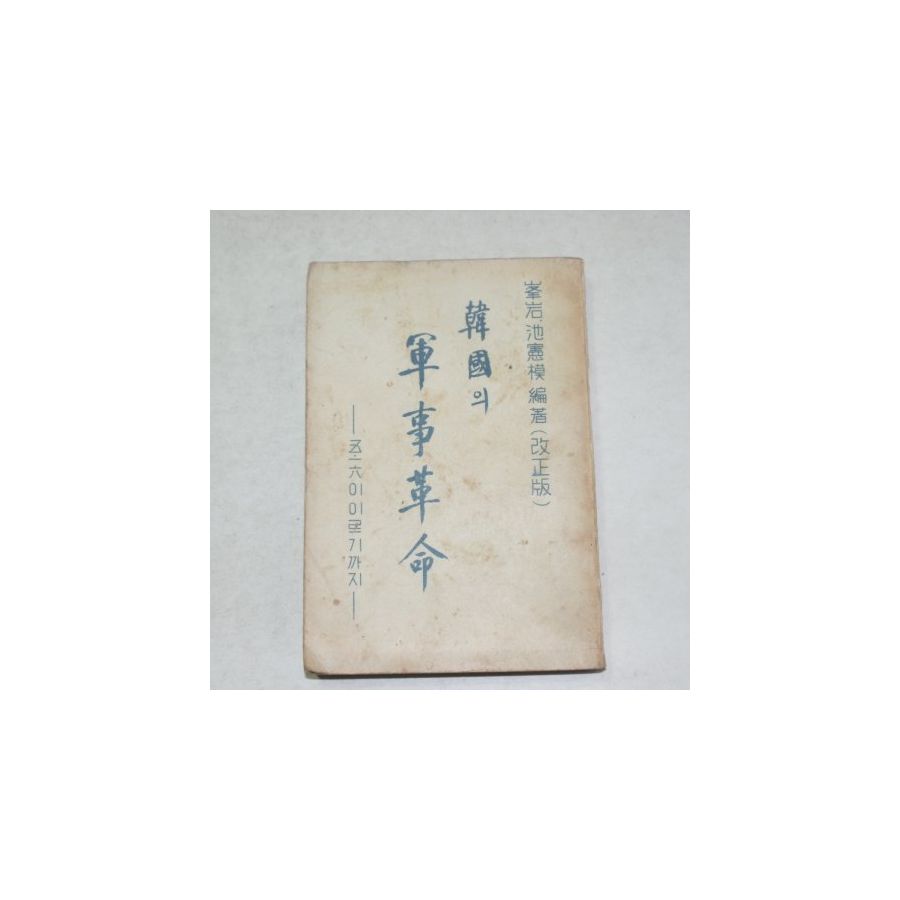 峯岩.池憲模 編著(改正版)
韓國의
軍事革命
—五·一六이이르기까지—